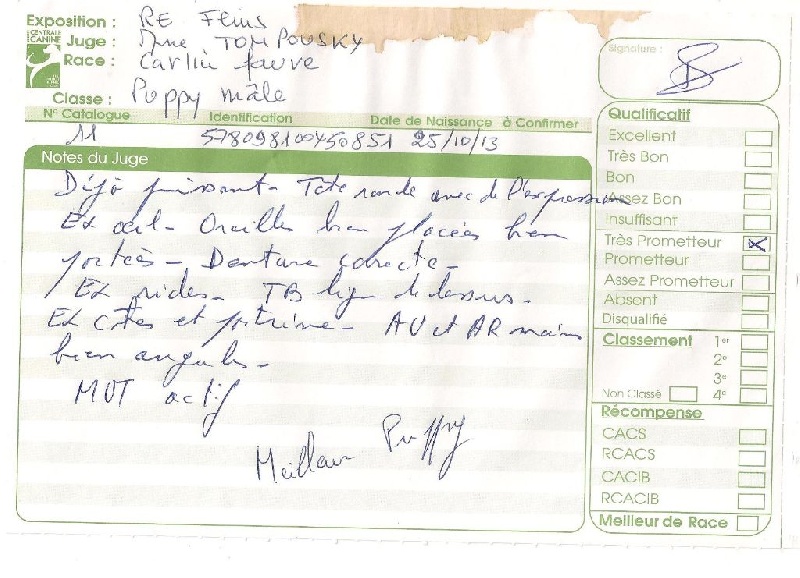 Exposition : RE Feins
CENTRALE
CANINE
Juge : Mme TOMPOUSKY
Race : Carlin fauve
Classe : Puppy mâle
N° Catalogue Identification Date de Naissance à Confirmer
11 578098100450851 25/10/13
Notes du Juge
Déjà puissant - Tete ronde avec de l'expression
Ex oeil - Oreilles bien placées bien
portées - Denture correcte -
Ex rides - TB lign de dessus -
Ex côtes et poitrine - AV et AR mains
bien angulés -
MVT actif
Meilleur Puppy
Signature :
Qualificatif
Excellent
Très Bon
Bon
Assez Bon
Insuffisant
Très Prometteur X
Prometteur
Assez Prometteur
Absent
Disqualifié
Classement 1er
2e
3e
Non Classé 4e
Récompense
CACS
RCACS
CACIB
RCACIB
Meilleur de Race